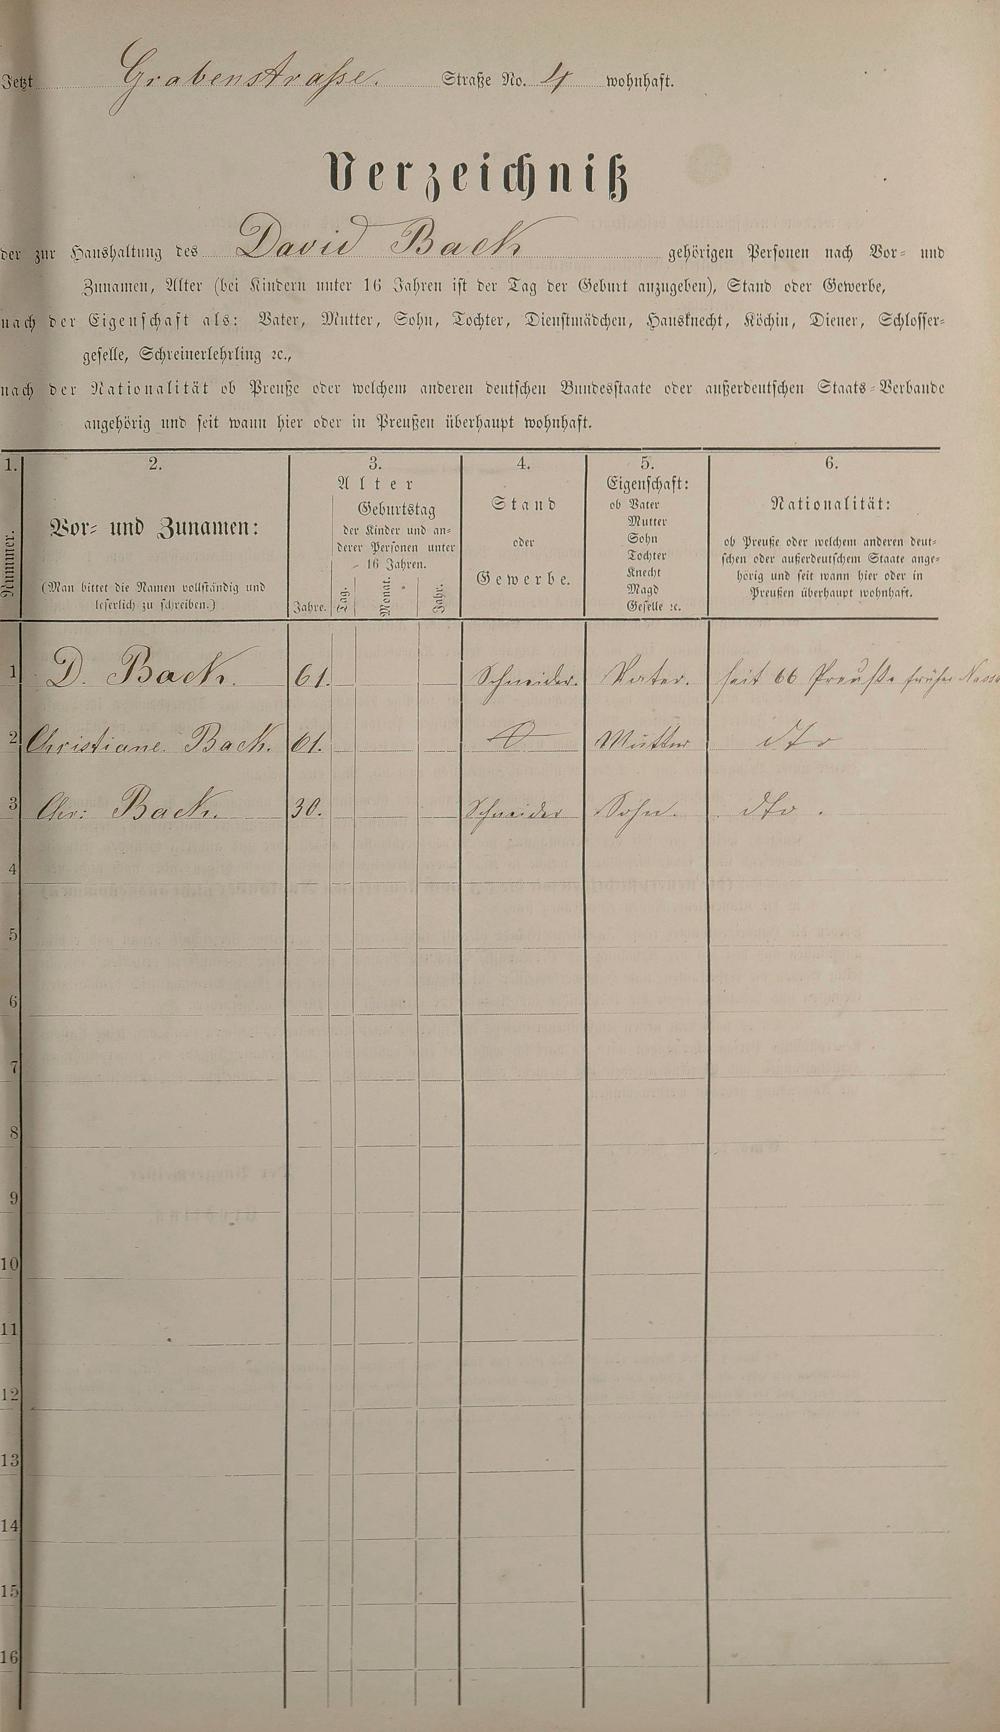 Jetzt Grabenstraße. Straße No. 4 wohnhaft.
Verzeichniß
der zur Haushaltung des David Back gehörigen Personen nach Vor- und
Zunamen, Alter (bei Kindern unter 16 Jahren ist der Tag der Geburt anzugeben), Stand oder Gewerbe,
nach der Eigenschaft als: Vater, Mutter, Sohn, Tochter, Dienstmädchen, Hausknecht, Köchin, Diener, Schlosser-
geselle, Schreinerlehrling ꝛc.,
nach der Nationalität ob Preuße oder welchem anderen deutschen Bundesstaate oder außerdeutschen Staats-Verbande
angehörig und seit wann hier oder in Preußen überhaupt wohnhaft.
1. 2. 3. 4. 5. 6.
Nummer.
Vor- und Zunamen:
(Man bittet die Namen vollständig und
leserlich zu schreiben.)
Alter
Geburtstag
der Kinder und an-
derer Personen unter
16 Jahren.
Jahre. Tag. Monat. Jahr.
Stand
oder
Gewerbe.
Eigenschaft:
ob Vater
Mutter
Sohn
Tochter
Knecht
Magd
Geselle ꝛc.
Nationalität:
ob Preuße oder welchem anderen deut-
schen oder außerdeutschem Staate ange-
hörig und seit wann hier oder in
Preußen überhaupt wohnhaft.
1 D. Back. 61. Schneider. Vater. seit 66 Preuße früher
2 Christiane Back. 61. Mutter dto
3 Chr: Back. 30. Schneider Sohn. dto.
4
5
6
7
8
9
10
11
12
13
14
15
16